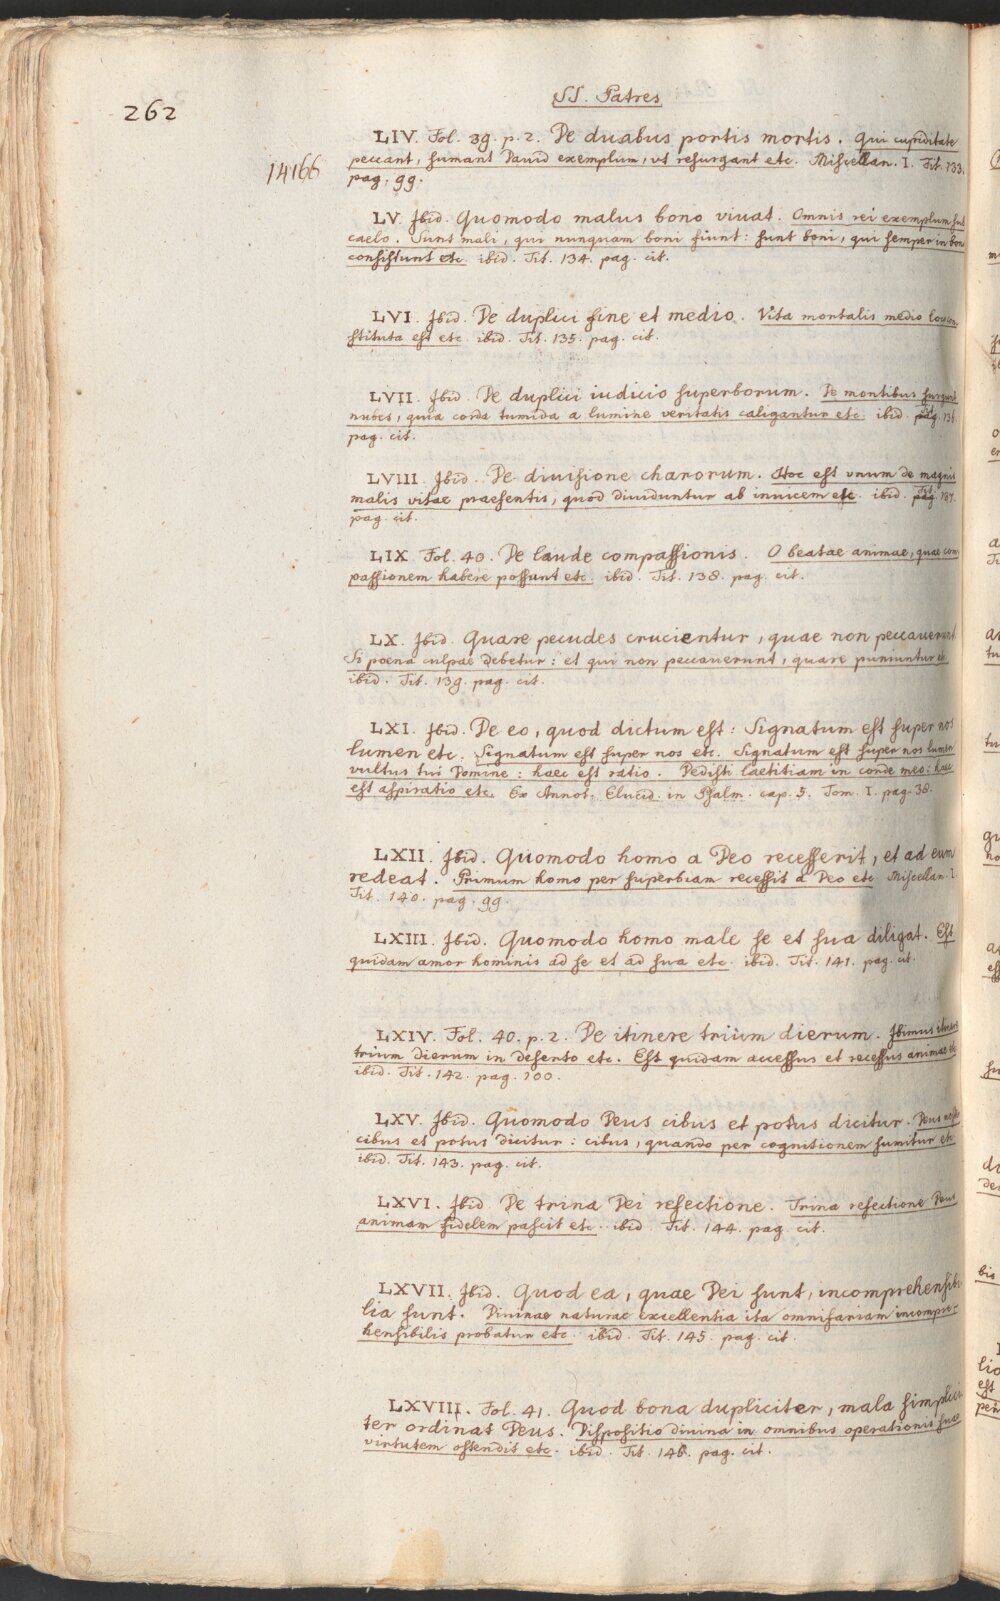 262
SS. Patres
14166
LIV. Fol. 39. p. 2. De duabus portis mortis. Qui cupiditate
peccant, sumant David exemplum, vt resurgant etc. Miscellan. I. Tit. 133.
pag. 99.
LV. Ibid. Quomodo malus bono viuat. Omnis rei exemplum
caelo. Sunt mali, qui nunquam boni fiunt: sunt boni, qui semper in bono
consistunt etc. ibid. Tit. 134. pag. cit.
LVI. Ibid. De duplici fine et medio. Vita mortalis medio loco con-
stituta est etc. ibid. Tit. 135. pag. cit.
LVII. Ibid. De duplici iudicio superborum. De montibus surgunt
nubes, quia corda tumida a lumine veritatis caligantur etc. ibid. Tit. 136.
pag. cit.
LVIII. Ibid. De diuisione charorum. Hoc est vnum de magnis
malis vitae praesentis, quod diuiduntur ab inuicem etc. ibid. Tit. 137.
pag. cit.
LIX. Fol. 40. De laude compassionis. O beatae animae, quae com-
passionem habere possunt etc. ibid. Tit. 138. pag. cit.
LX. Ibid. Quare pecudes crucientur, quae non peccauerunt
Si poena culpae debetur: et qui non peccauerunt, quare puniuntur etc.
ibid. Tit. 139. pag. cit.
LXI. Ibid. De eo, quod dictum est: Signatum est super nos
lumen etc. Signatum est super nos etc. Signatum est super nos lumen
vultus tui Domine: haec est ratio. Dedisti laetitiam in corde meo: haec
est aspiratio etc. Ex Annot. Elucid. in Psalm. cap. 5. Tom. I. pag. 38.
LXII. Ibid. Quomodo homo a Deo recesserit, et ad eum
redeat. Primum homo per superbiam recessit a Deo etc. Miscellan. I
Tit. 140. pag. 99.
LXIII. Ibid. Quomodo homo male se et sua diligat. Est
quidam amor hominis ad se et ad sua etc. ibid. Tit. 141. pag. cit.
LXIV. Fol. 40. p. 2. De itinere triùm dierum. Ibimus itinere
triùm dierum in deserto etc. Est quidam accessus et recessus animae etc
ibid. Tit. 142. pag. 100.
LXV. Ibid. Quomodo Deus cibus et potus dicitur. Deus noster
cibus et potus dicitur: cibus, quando per cognitionem sumitur etc
ibid. Tit. 143. pag. cit.
LXVI. Ibid. De trina Dei refectione. Trina refectione Deus
animam fidelem pascit etc. ibid. Tit. 144. pag. cit.
LXVII. Ibid. Quod ea, quae Dei sunt, incomprehensibi-
lia sunt. Diuinae naturae excellentia ita omnifariam incompre-
hensibilis probatur etc. ibid. Tit. 145. pag. cit.
LXVIII. Fol. 41. Quod bona dupliciter, mala simplici-
ter ordinat Deus. Dispositio diuina in omnibus operationis suae
virtutem ostendit etc. ibid. Tit. 146. pag. cit.